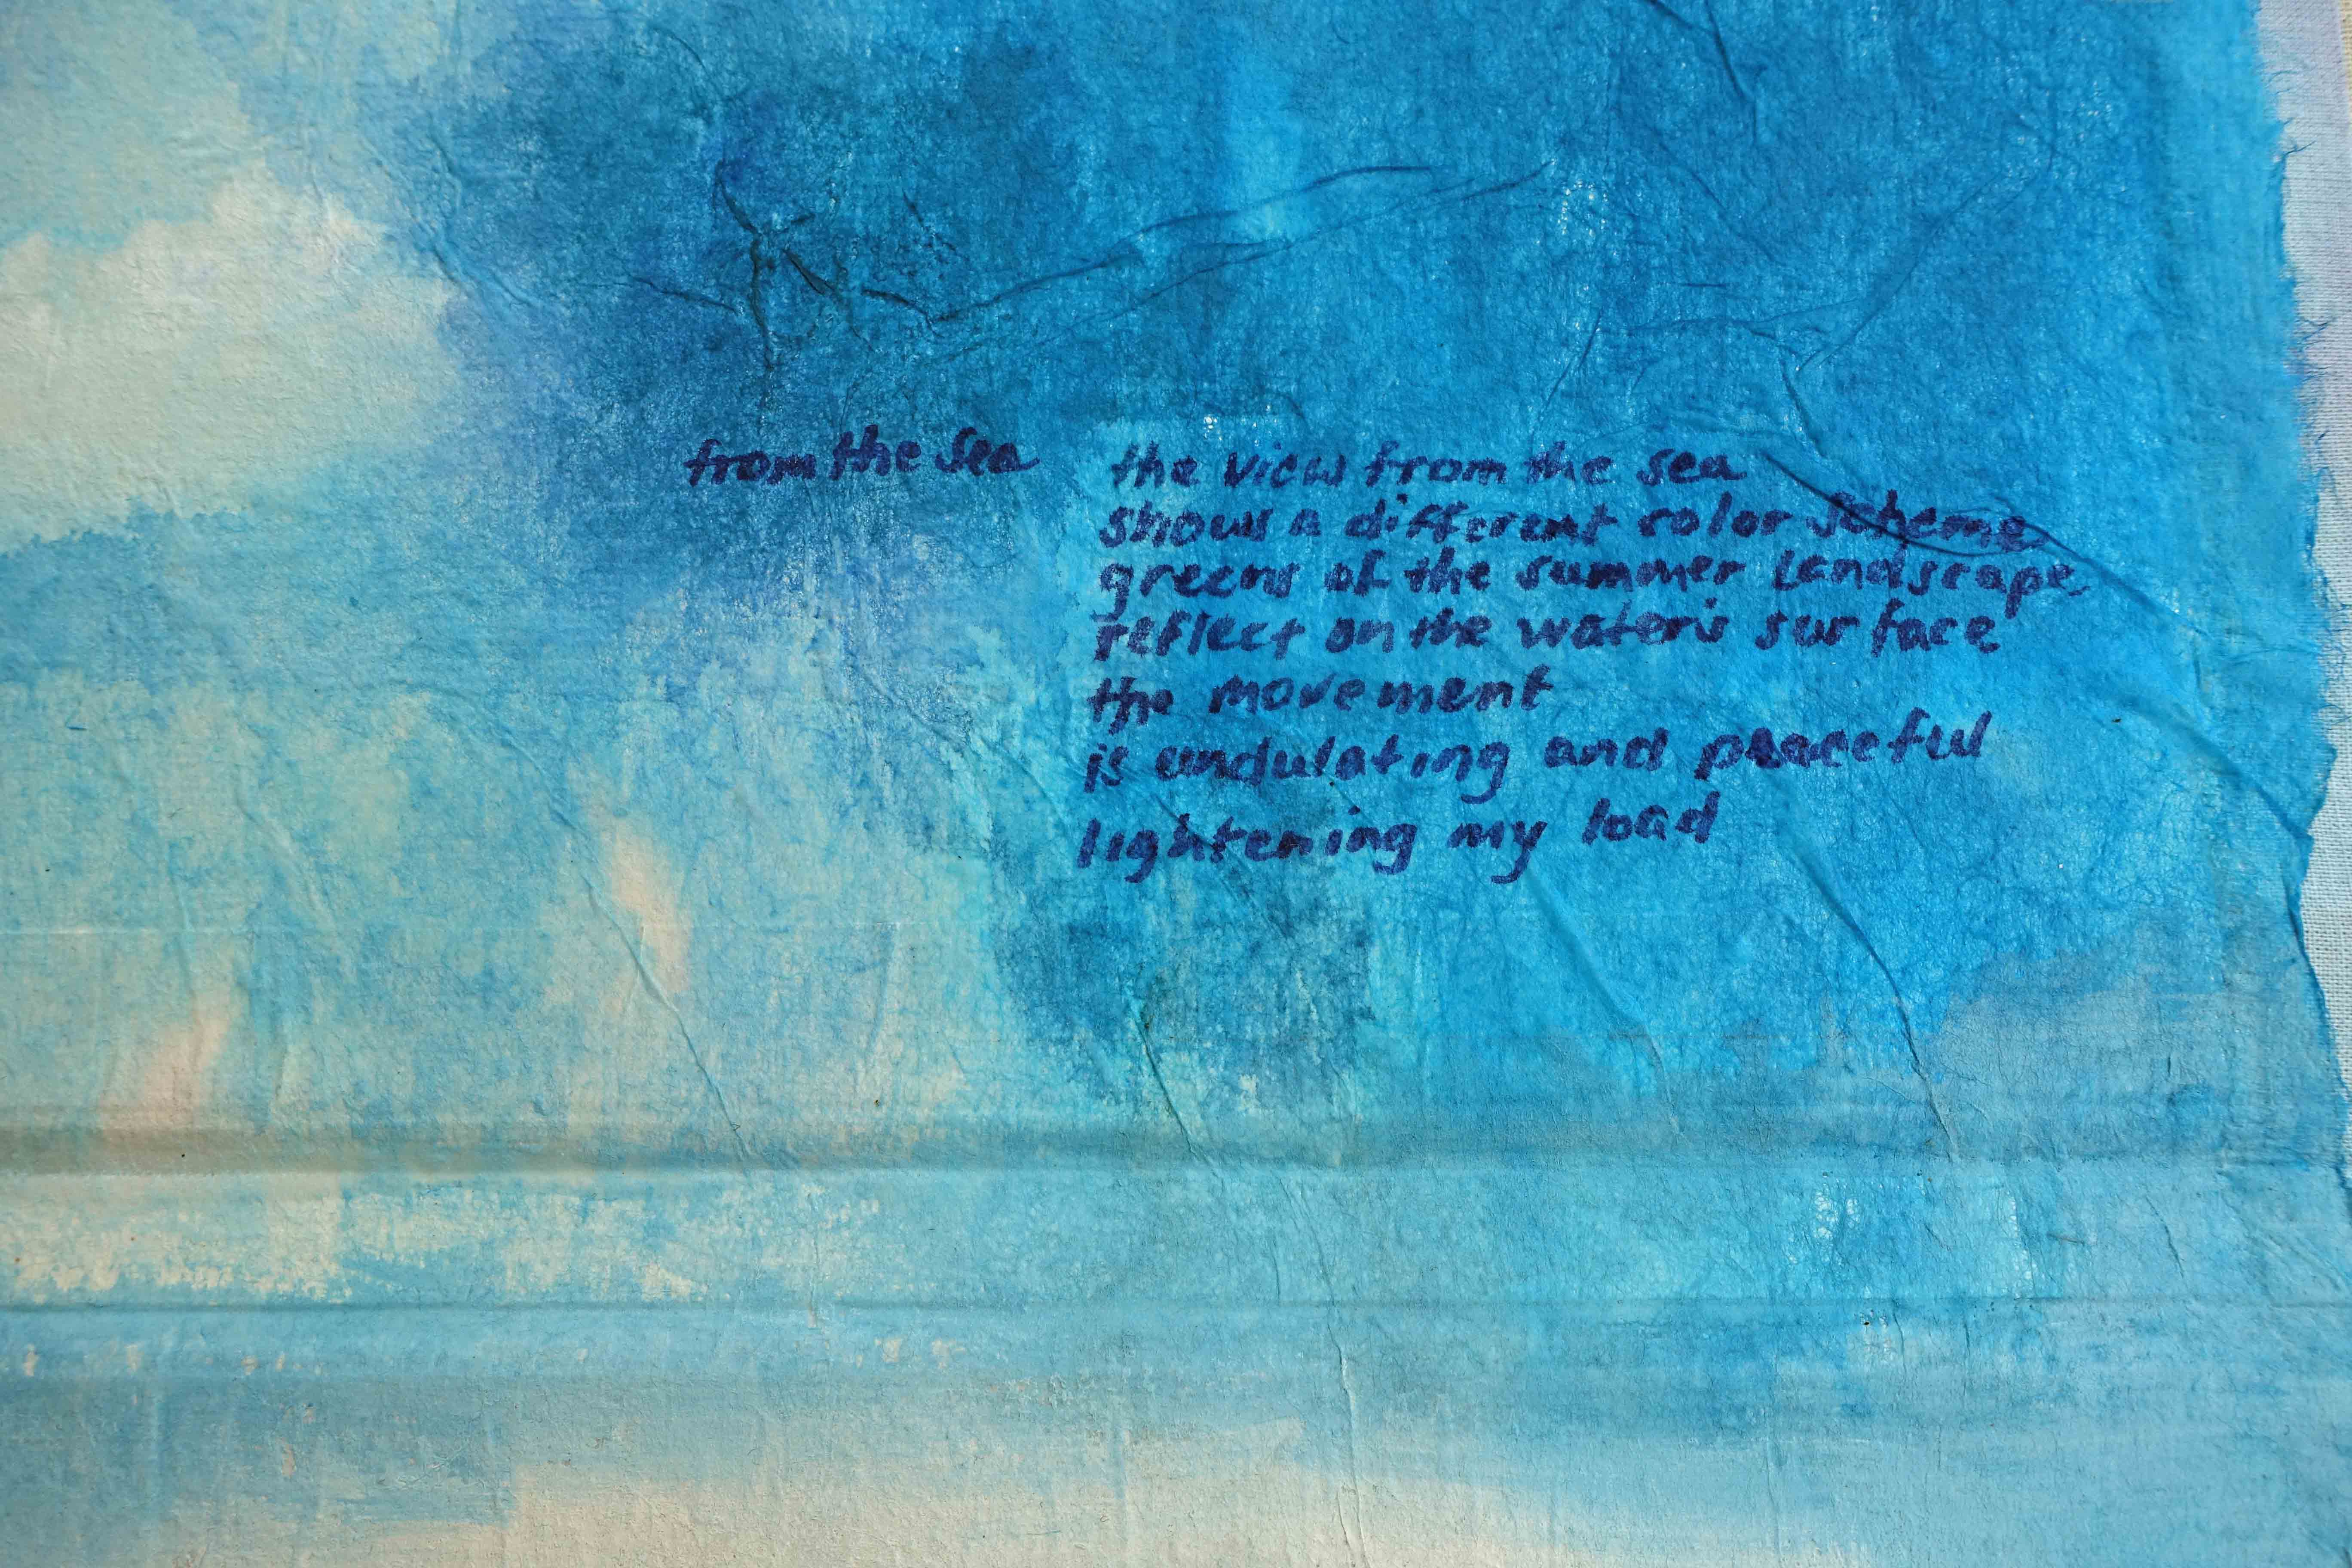 from the sea
the view from the sea
shows a different color scheme
greens of the summer landscape,
reflect on the water's surface
the movement
is undulating and peaceful
lightening my load